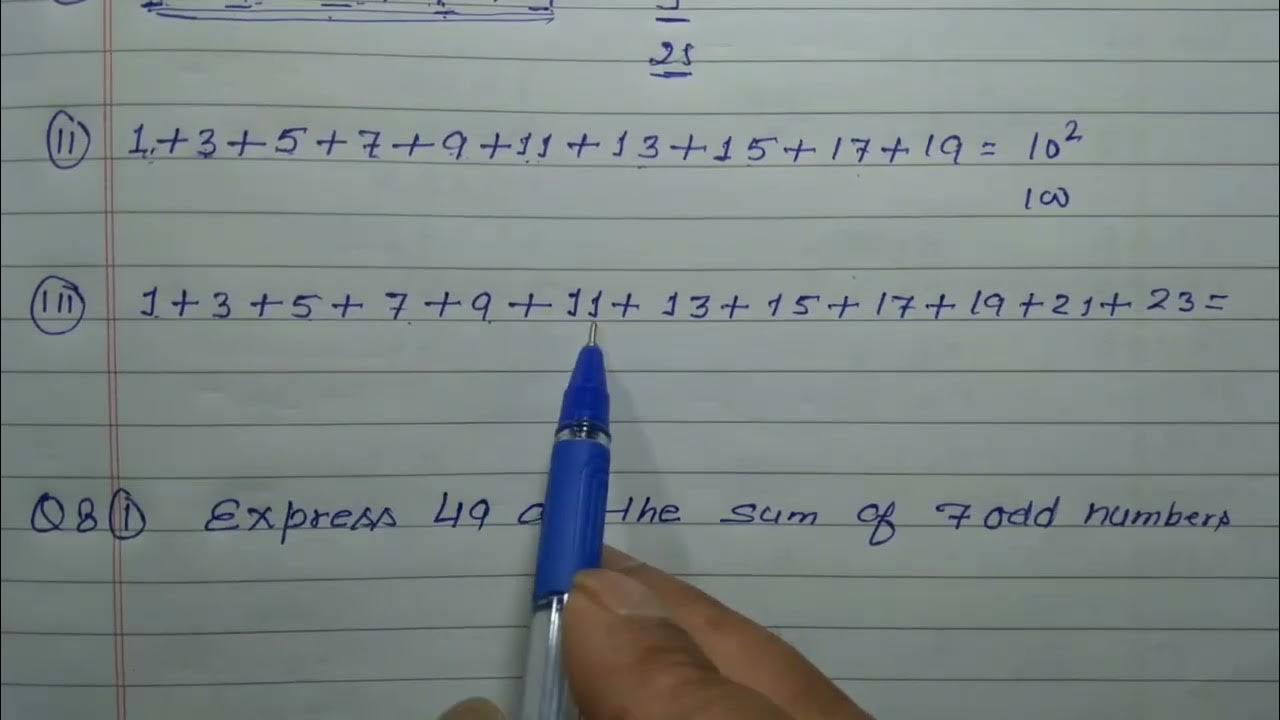 25
(ii) 1+3+5+7+9+11+13+15+17+19 = 10²
100
(iii) 1+3+5+7+9+11+13+15+17+19+21+23=
Q8 (i) Express 49 the sum of 7 odd numbers